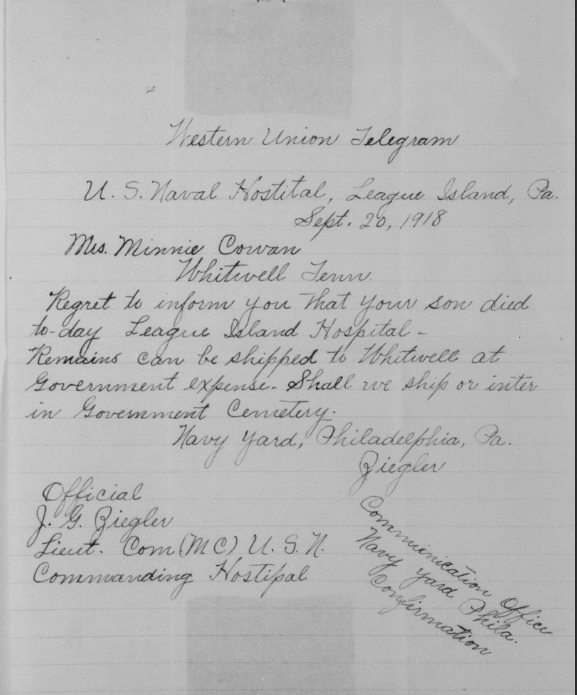 Western Union Telegram
U. S. Naval Hostital, League Island, Pa.
Sept. 20, 1918
Mrs. Minnie Cowan
Whitwell Tenn.
Regret to inform you that your son died
to-day League Island Hospital -
Remains can be shipped to Whitwell at
Government expense - Shall we ship or inter
in Government Cemetery.
Navy Yard, Philadelphia, Pa.
Ziegler
Official
J. G. Ziegler
Lieut. Com (MC) U. S. N.
Commanding Hostipal
Communication Office
Navy Yard Phila.
Confirmation